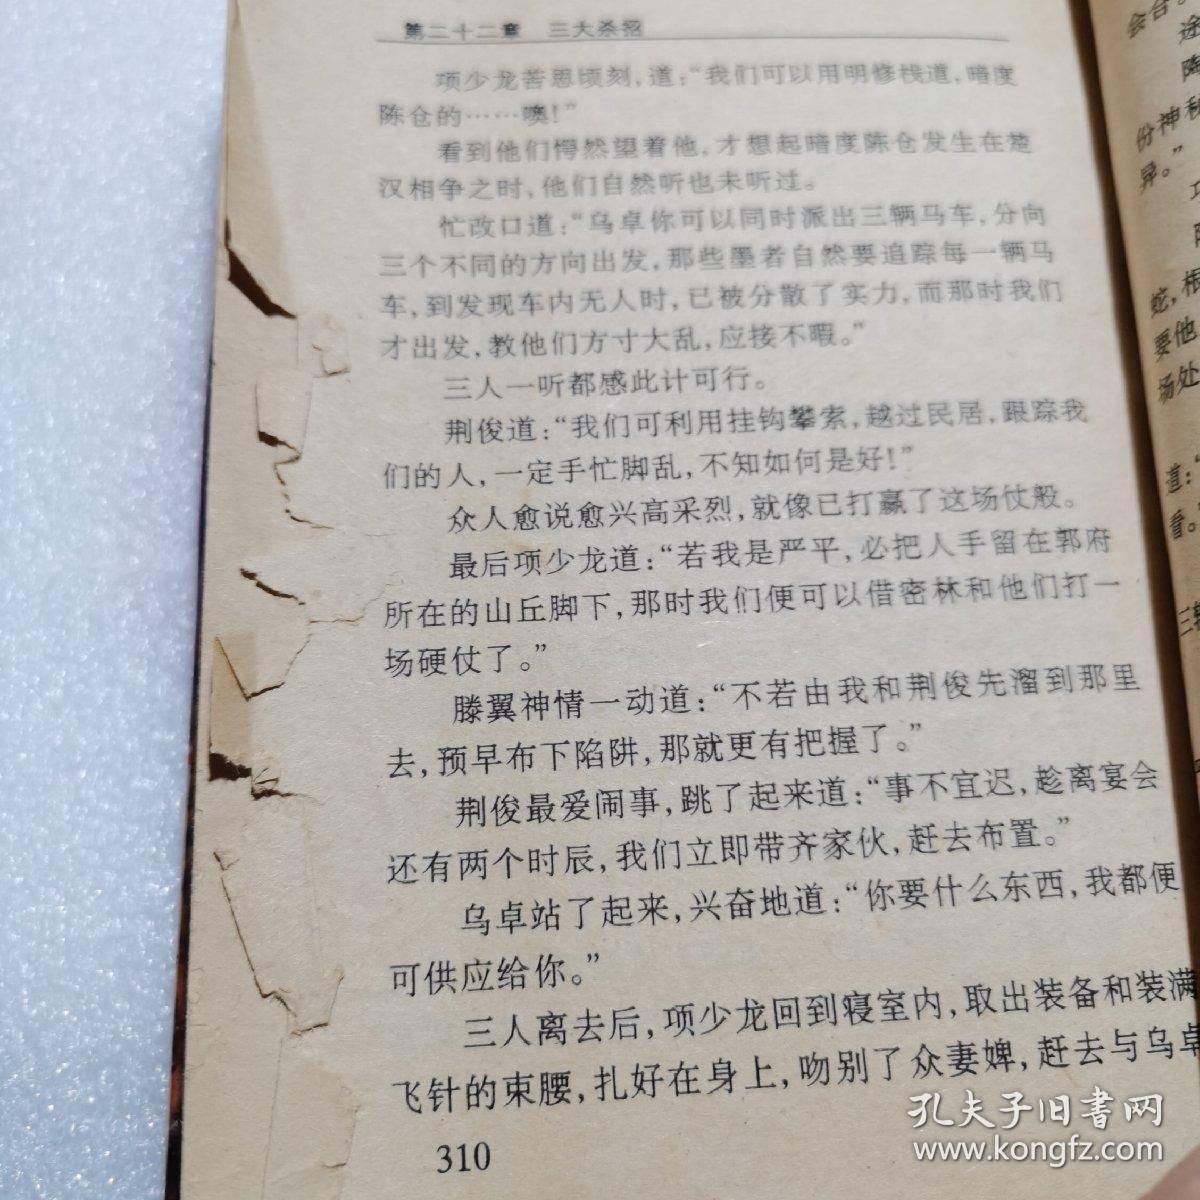 第二十二章 三大杀招
项少龙苦思顷刻,道:“我们可以用明修栈道,暗度
陈仓的……噢!”
看到他们愕然望着他,才想起暗度陈仓发生在楚
汉相争之时,他们自然听也未听过。
忙改口道:“乌卓你可以同时派出三辆马车,分向
三个不同的方向出发,那些墨者自然要追踪每一辆马
车,到发现车内无人时,已被分散了实力,而那时我们
才出发,教他们方寸大乱,应接不暇。”
三人一听都感此计可行。
荆俊道:“我们可利用挂钩攀索,越过民居,跟踪我
们的人,一定手忙脚乱,不知如何是好!”
众人愈说愈兴高采烈,就像已打赢了这场仗般。
最后项少龙道:“若我是严平,必把人手留在郭府
所在的山丘脚下,那时我们便可以借密林和他们打一
场硬仗了。”
滕翼神情一动道:“不若由我和荆俊先溜到那里
去,预早布下陷阱,那就更有把握了。”
荆俊最爱闹事,跳了起来道:“事不宜迟,趁离宴会
还有两个时辰,我们立即带齐家伙,赶去布置。”
乌卓站了起来,兴奋地道:“你要什么东西,我都便
可供应给你。”
三人离去后,项少龙回到寝室内,取出装备和装满
飞针的束腰,扎好在身上,吻别了众妻婢,赶去与乌卓
310
会合。
途
陶
份神秘
异。”
蛇,根
要他
场处
道:“
看。”
三辆
孔夫子旧书网
www.kongfz.com